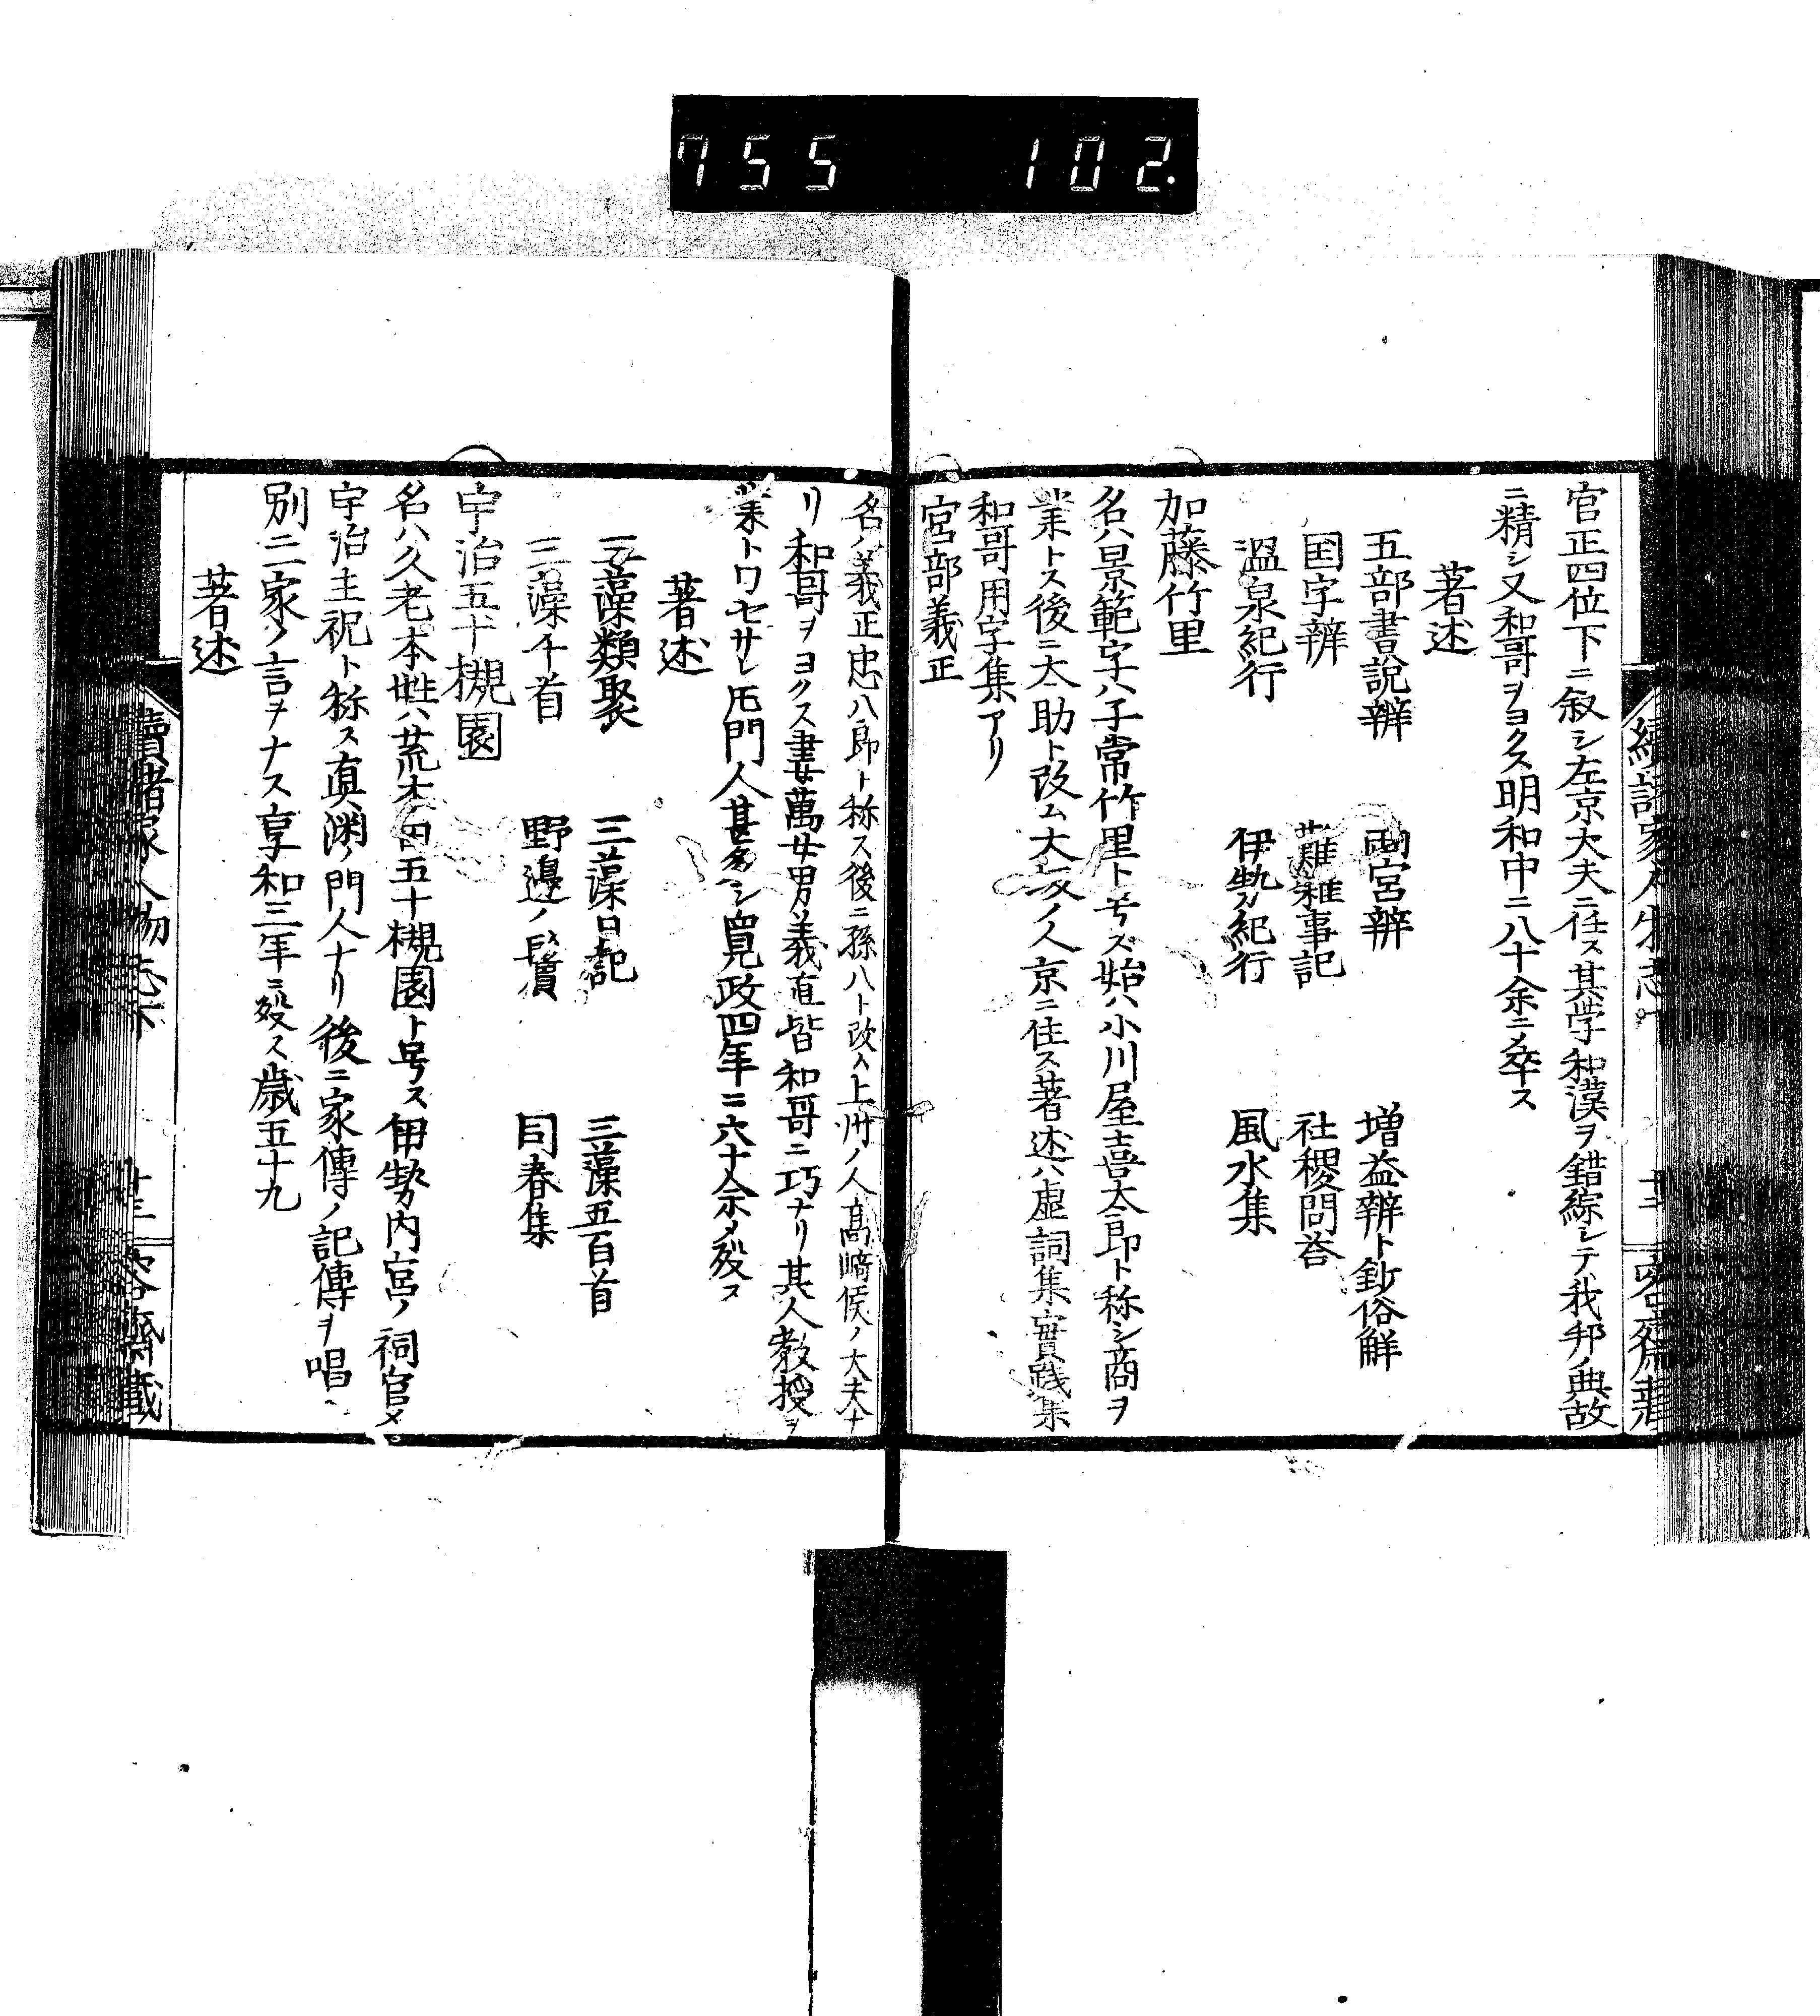 755 102.
官正四位下ニ叙シ左京大夫ニ任ス其学和漢ヲ錯綜シテ我邦ノ典故
ニ精シ又和哥ヲヨクス明和中ニ八十余ニメ卒ス
著述
五部書說辨 両宮辨 増益辨卜鈔俗解
国字辨 難雜事記 社稷問荅
溫泉紀行 伊勢紀行 風水集
加藤竹里
名ハ景範字ハ子常竹里ト号ズ始ハ小川屋喜太郎ト称シ商ヲ
業トス後ニ大助ト改ム大坂ノ人京ニ住ス著述ハ虚詞集實践集
和哥用字集アリ
宮部義正
名ハ義正忠八郎ト称ス後ニ孫八ト改ム上州ノ人高﨑候ノ大夫ナ
リ和哥ヲヨクス妻萬女男義直皆和哥ニ巧ナリ其人教授ヲ
業トワセサレ𪜈門人甚多シ寛政四年ニ六十余メ殁ス
著述
三藻類聚 三藻日記 三藻五百首
三藻千首 野邊ノ鬢 同春集
宇治五十槻園
名ハ久老本姓ハ荒木田五十槻園ト号ス伊勢内宮ノ祠官メ
宇治主祝ト称ス真渊ノ門人ナリ後ニ家傳ノ記傳ヲ唱
別ニ一家ノ言ヲナス享和三年ニ殁ス歳五十九
著述